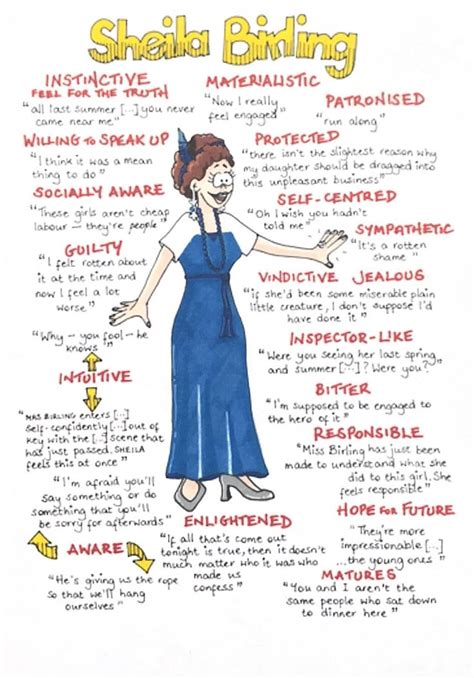 Sheila Birling
INSTINCTIVE
FEEL FOR THE TRUTH
"all last summer [...] you never
came near me"
MATERIALISTIC
"Now I really
feel engaged"
PATRONISED
"run along"
WILLING to SPEAK UP
"I think it was a mean
thing to do"
PROTECTED
"there isn't the slightest reason why
my daughter should be dragged into
this unpleasant business"
SOCIALLY AWARE
"These girls aren't cheap
labour – they're people"
SELF-CENTRED
"Oh I wish you hadn't
told me"
SYMPATHETIC
"It's a rotten
shame"
GUILTY
"I felt rotten about
it at the time and
now I feel a lot
worse"
VINDICTIVE JEALOUS
"if she'd been some miserable plain
little creature, I don't suppose I'd
have done it"
"Why – you fool – he
knows"
INTUITIVE
"MRS BIRLING enters [...]
self-confidently [...] out of
key with the [...] scene that
has just passed. SHEILA
feels this at once"
INSPECTOR-LIKE
"Were you seeing her last spring
and summer [...]? Were you?"
BITTER
"I'm supposed to be engaged to
the hero of it"
RESPONSIBLE
"Miss Birling has just been
made to understand what she
did to this girl. She
feels responsible"
"I'm afraid you'll
say something or do
something that you'll
be sorry for afterwards"
AWARE
"He's giving us the rope
so that we'll hang
ourselves"
ENLIGHTENED
"If all that's come out
tonight is true, then it doesn't
much matter who it was who
made us
confess"
HOPE FOR FUTURE
"They're more
impressionable [...]
...the young ones"
MATURES
"You and I aren't the
same people who sat down
to dinner here"